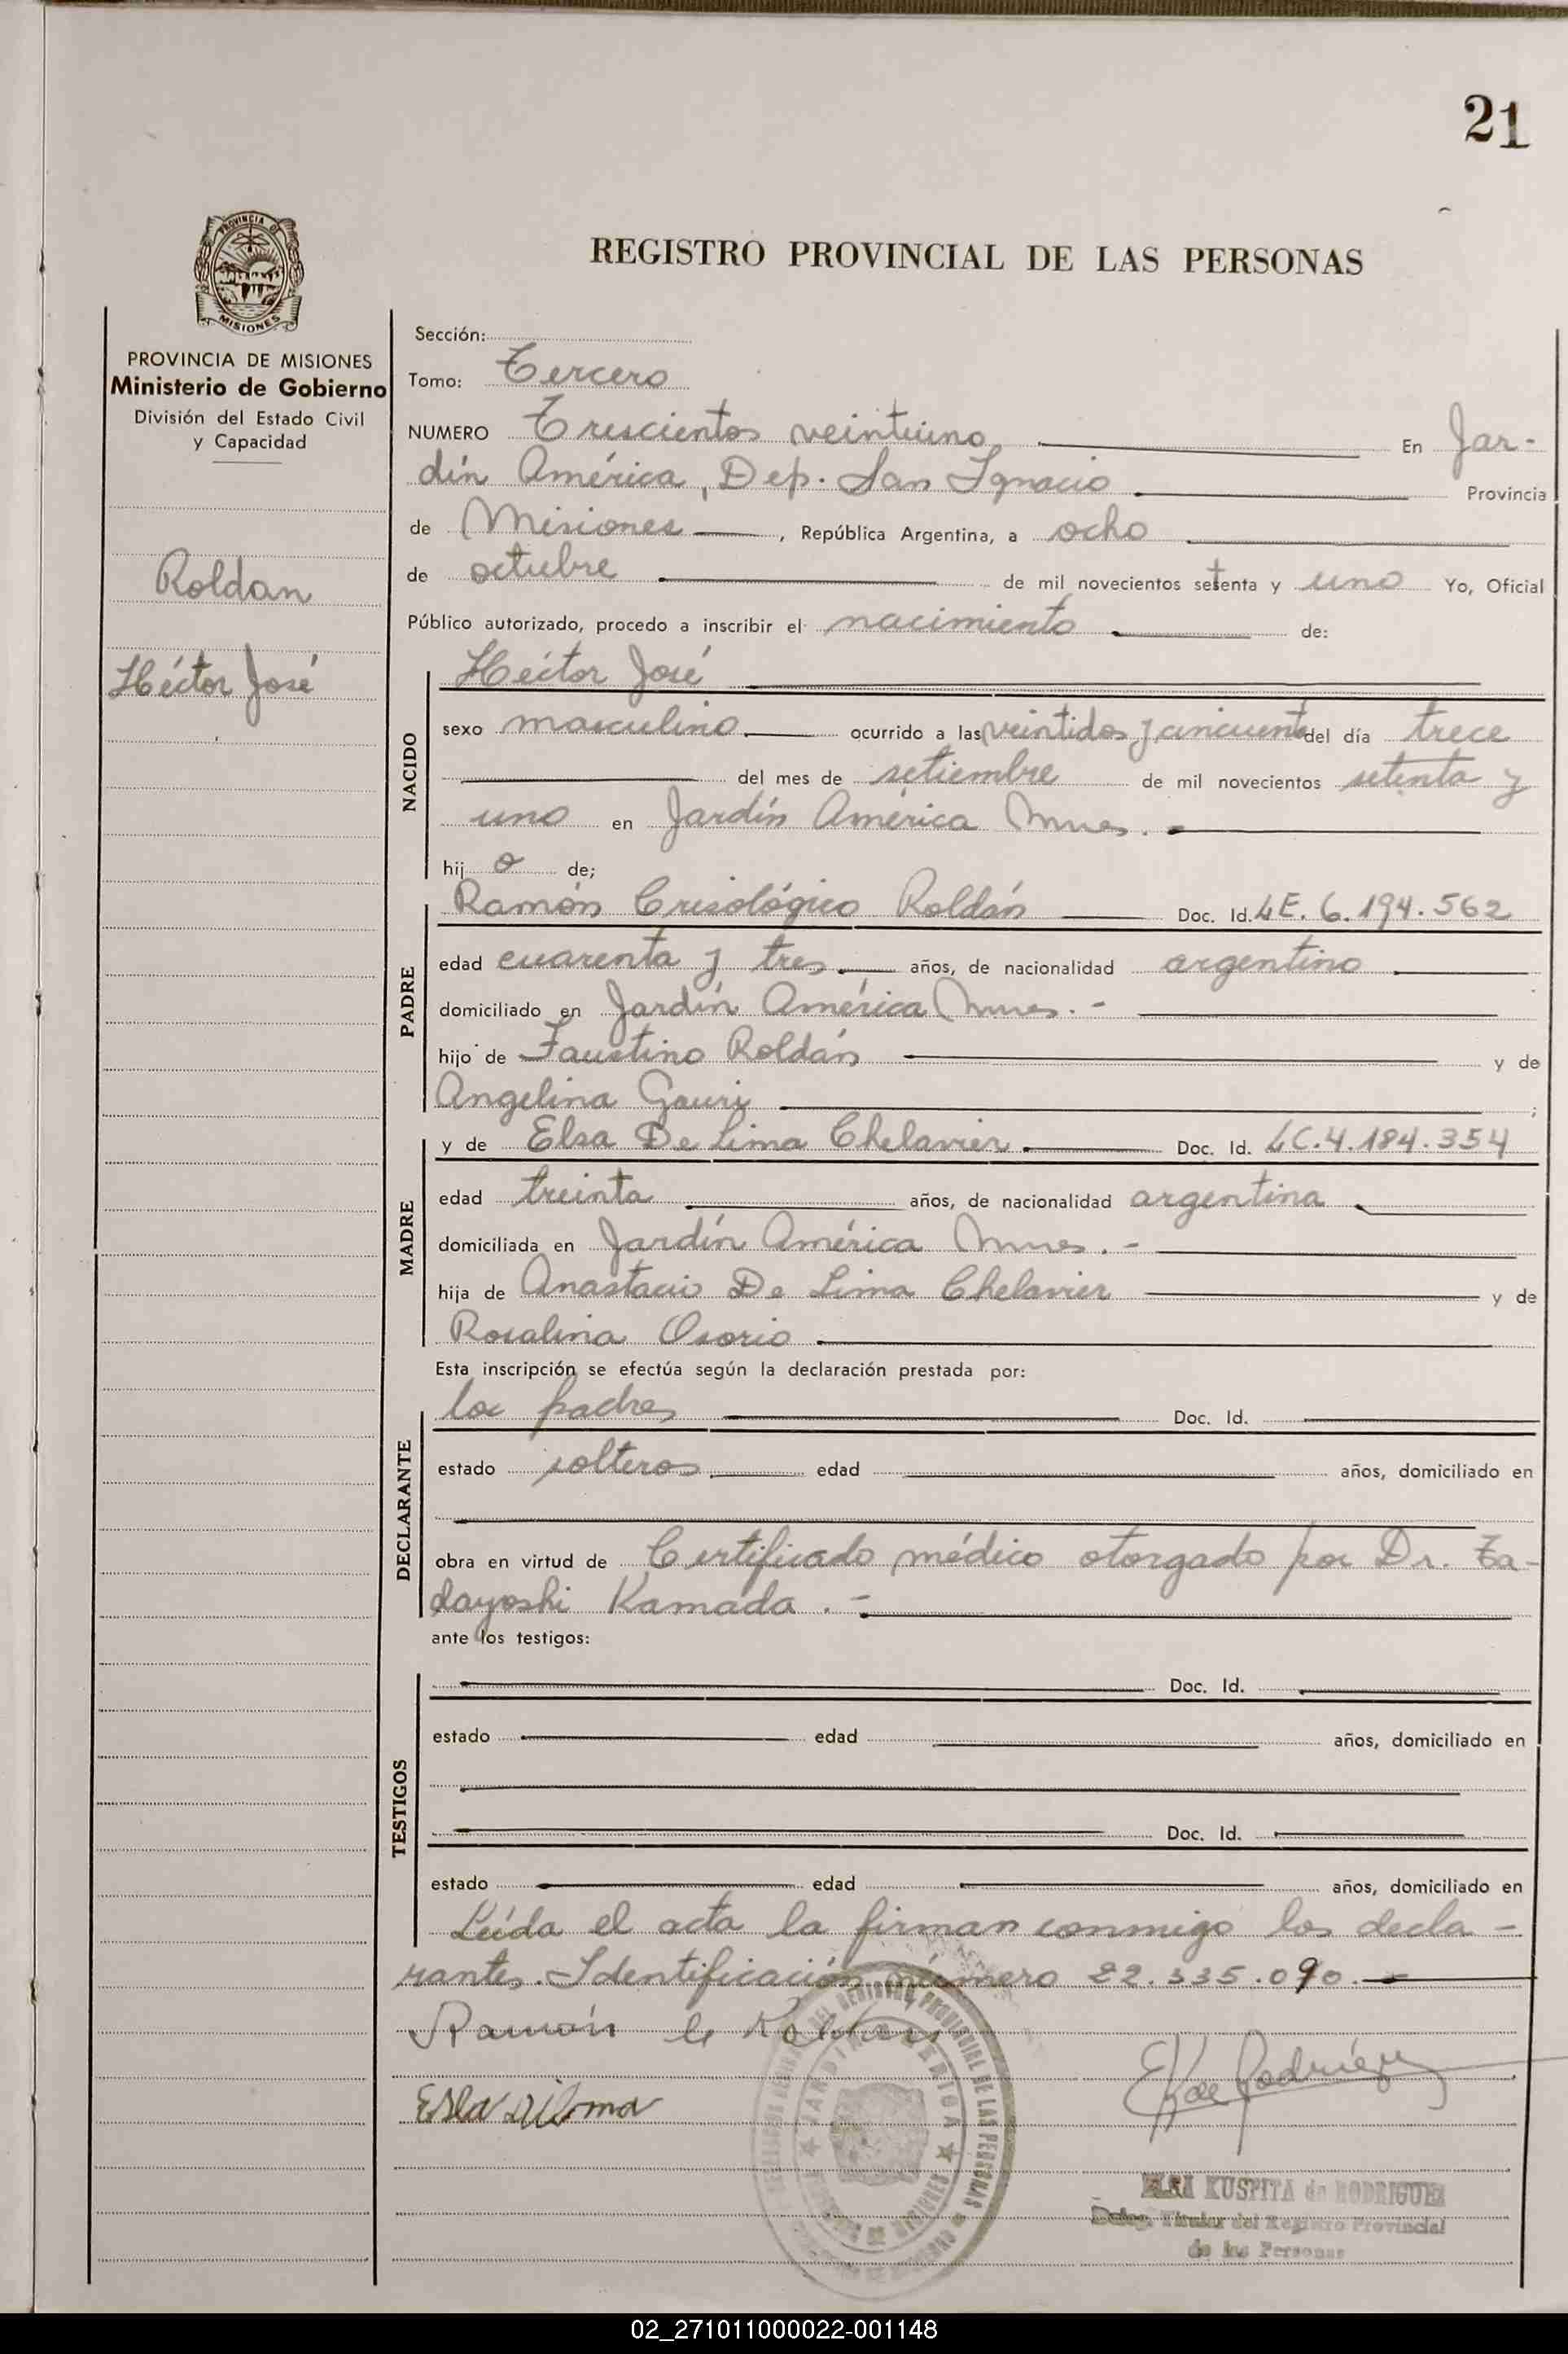 21
PROVINCIA DE
MISIONES
REGISTRO PROVINCIAL DE LAS PERSONAS
PROVINCIA DE MISIONES
Ministerio de Gobierno
División del Estado Civil
y Capacidad
Roldan
Héctor José
Sección:
Tomo: Tercero
NUMERO Trescientos veintiuno En Jar-
dín América, Dep. San Ignacio Provincia
de Misiones, República Argentina, a ocho
de octubre de mil novecientos setenta y uno Yo, Oficial
Público autorizado, procedo a inscribir el nacimiento de:
NACIDO
Héctor José
sexo masculino ocurrido a las veintidos y cincuenta del día trece
del mes de setiembre de mil novecientos setenta y
uno en Jardín América Mnes.
hij o de;
PADRE
Ramón Crisológico Roldán Doc. Id. LE. 6.194.562
edad cuarenta y tres años, de nacionalidad argentino
domiciliado en Jardín América Mnes. -
hijo de Faustino Roldán y de
Angelina Gauri ;
MADRE
y de Elsa De Lima Chelavier Doc. Id. LC.4.184.354
edad treinta años, de nacionalidad argentina
domiciliada en Jardín América Mnes. -
hija de Anastacio De Lima Chelavier y de
Rosalina Osorio
Esta inscripción se efectúa según la declaración prestada por:
DECLARANTE
los padres Doc. Id.
estado solteros edad años, domiciliado en
obra en virtud de Certificado médico otorgado por Dr. Ta-
dayoshi Kamada. -
ante los testigos:
TESTIGOS
Doc. Id.
estado edad años, domiciliado en
Doc. Id.
estado edad años, domiciliado en
Leída el acta la firman conmigo los decla-
rantes. Identificación número 22.335.090. -
Ramón C Roldan
Elsa
EK de Rodríguez
ELSA KUSPITA de RODRIGUEZ
Deleg. Titular del Registro Provincial
de las Personas
DEL REGISTRO PROVINCIAL DE LAS PERSONAS
JARDIN AMERICA
02_271011000022-001148